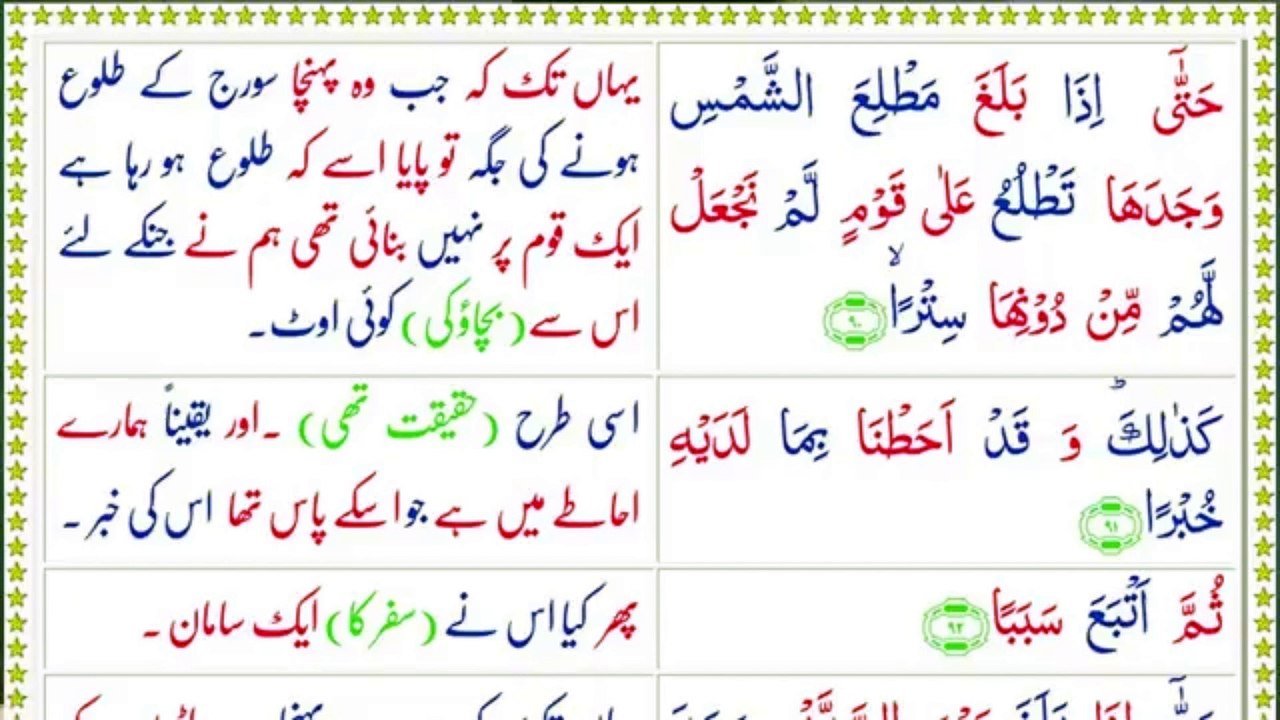 حَتّٰۤى اِذَا بَلَغَ مَطْلِعَ الشَّمْسِ
وَجَدَهَا تَطْلُعُ عَلٰى قَوْمٍ لَّمْ نَجْعَلْ
لَّهُمْ مِّنْ دُوْنِهَا سِتْرًاۙ ٩٠
یہاں تک کہ جب وہ پہنچا سورج کے طلوع
ہونے کی جگہ تو پایا اسے کہ طلوع ہو رہا ہے
ایک قوم پر نہیں بنائی تھی ہم نے جنکے لئے
اس سے (بچاؤ کی) کوئی اوٹ۔
كَذٰلِكَؕ وَ قَدْ اَحَطْنَا بِمَا لَدَيْهِ
خُبْرًا ٩١
اسی طرح (حقیقت تھی) ۔اور یقیناً ہمارے
احاطے میں ہے جو اسکے پاس تھا اس کی خبر۔
ثُمَّ اَتْبَعَ سَبَبًا ٩٢
پھر کیا اس نے (سفر کا) ایک سامان۔